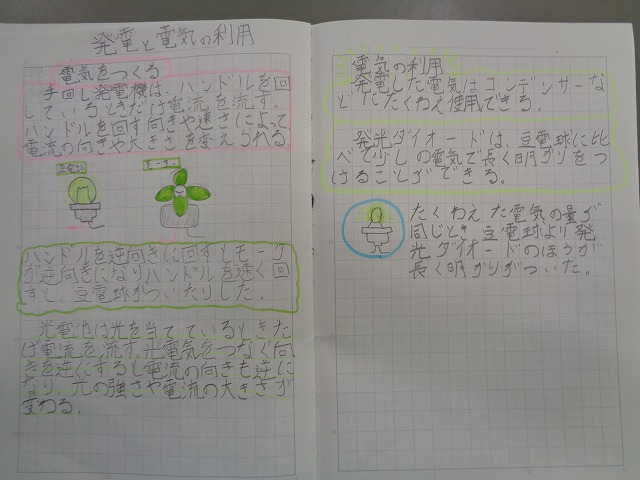 発電と電気の利用
電気をつくる
手回し発電機は、ハンドルを回
しているときだけ電流を流す。
ハンドルを回す向きや速さによって、
電流の向きや大きさを変えられる。
モーター
ハンドルを逆向きに回すとモータ
が逆向きになりハンドルを速く回
すと、豆電球がついたりした。
光電池は光を当てているときだ
け電流を流す。光電気をつなぐ向
きを逆にすると電流の向きも逆に
なり、光の強さや電流の大きさが
変わる。
電気の利用
発電した電気はコンデンサーな
どにたくわえ使用できる。
発光ダイオードは、豆電球に比
べて少しの電気で長く明かりをつ
けることができる。
たくわえた電気の量が
同じとき、豆電球より発
光ダイオードのほうが
長く明かりがついた。